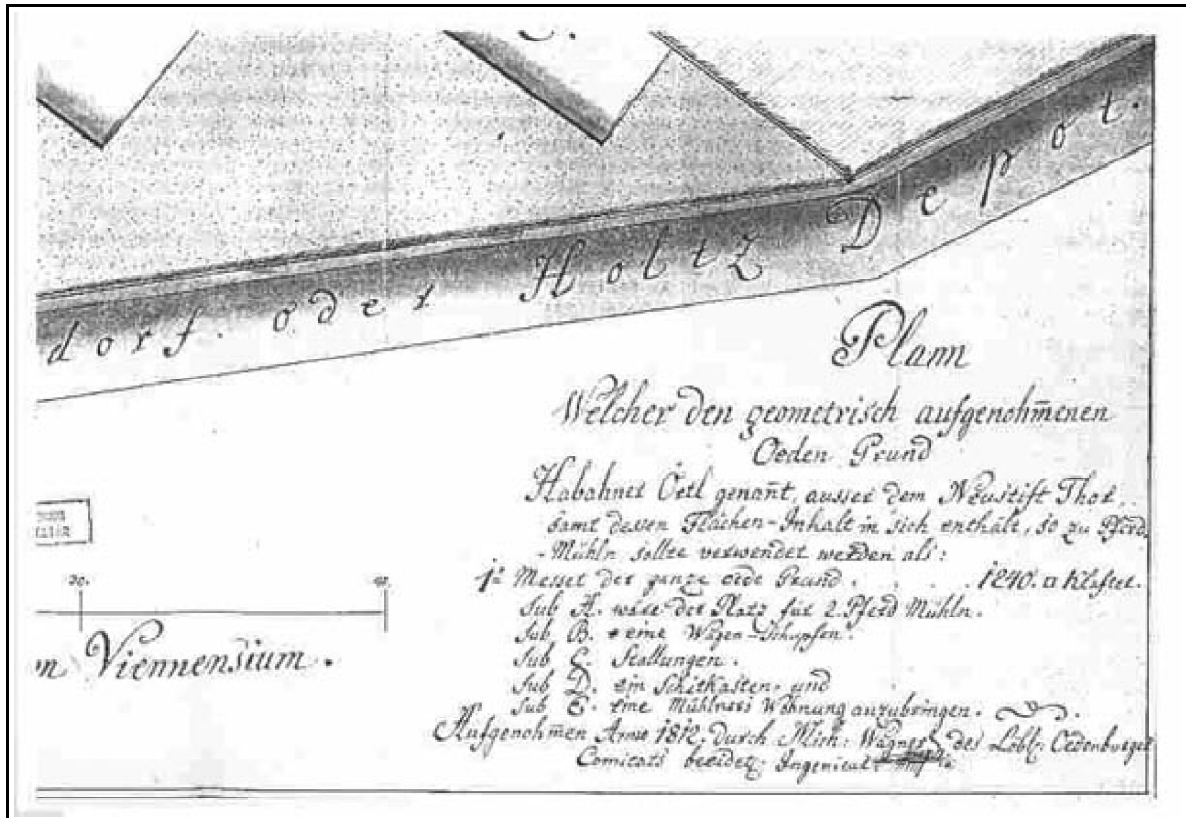 dorf. oder Holtz Depot.
Plann
Welcher den geometrisch aufgenohm̄enen
Oeden Grund
Habahner Öetl genan̄t, ausser dem Neustift Thor
samt dessen Flächen-Inhalt in sich enthält, so zu Pferd
-Mühln sollte verwendet werden als:
1º Messet der ganze oede Grund. . . . 1240. □ Klafter.
Sub A. wäre der Platz für 2. Pferd Mühln.
Sub B. eine Wagen-Schupfen.
Sub C. Stallungen.
Sub D. ein Schitkasten, und
Sub E. eine Mühlners Wohnung anzubringen.
30. 40.
on Viennensium.
Aufgenohm̄en Anno 1812. durch Mich: Wagner des Löbl: Oedenburger
Comitats beeidet: Ingenieur